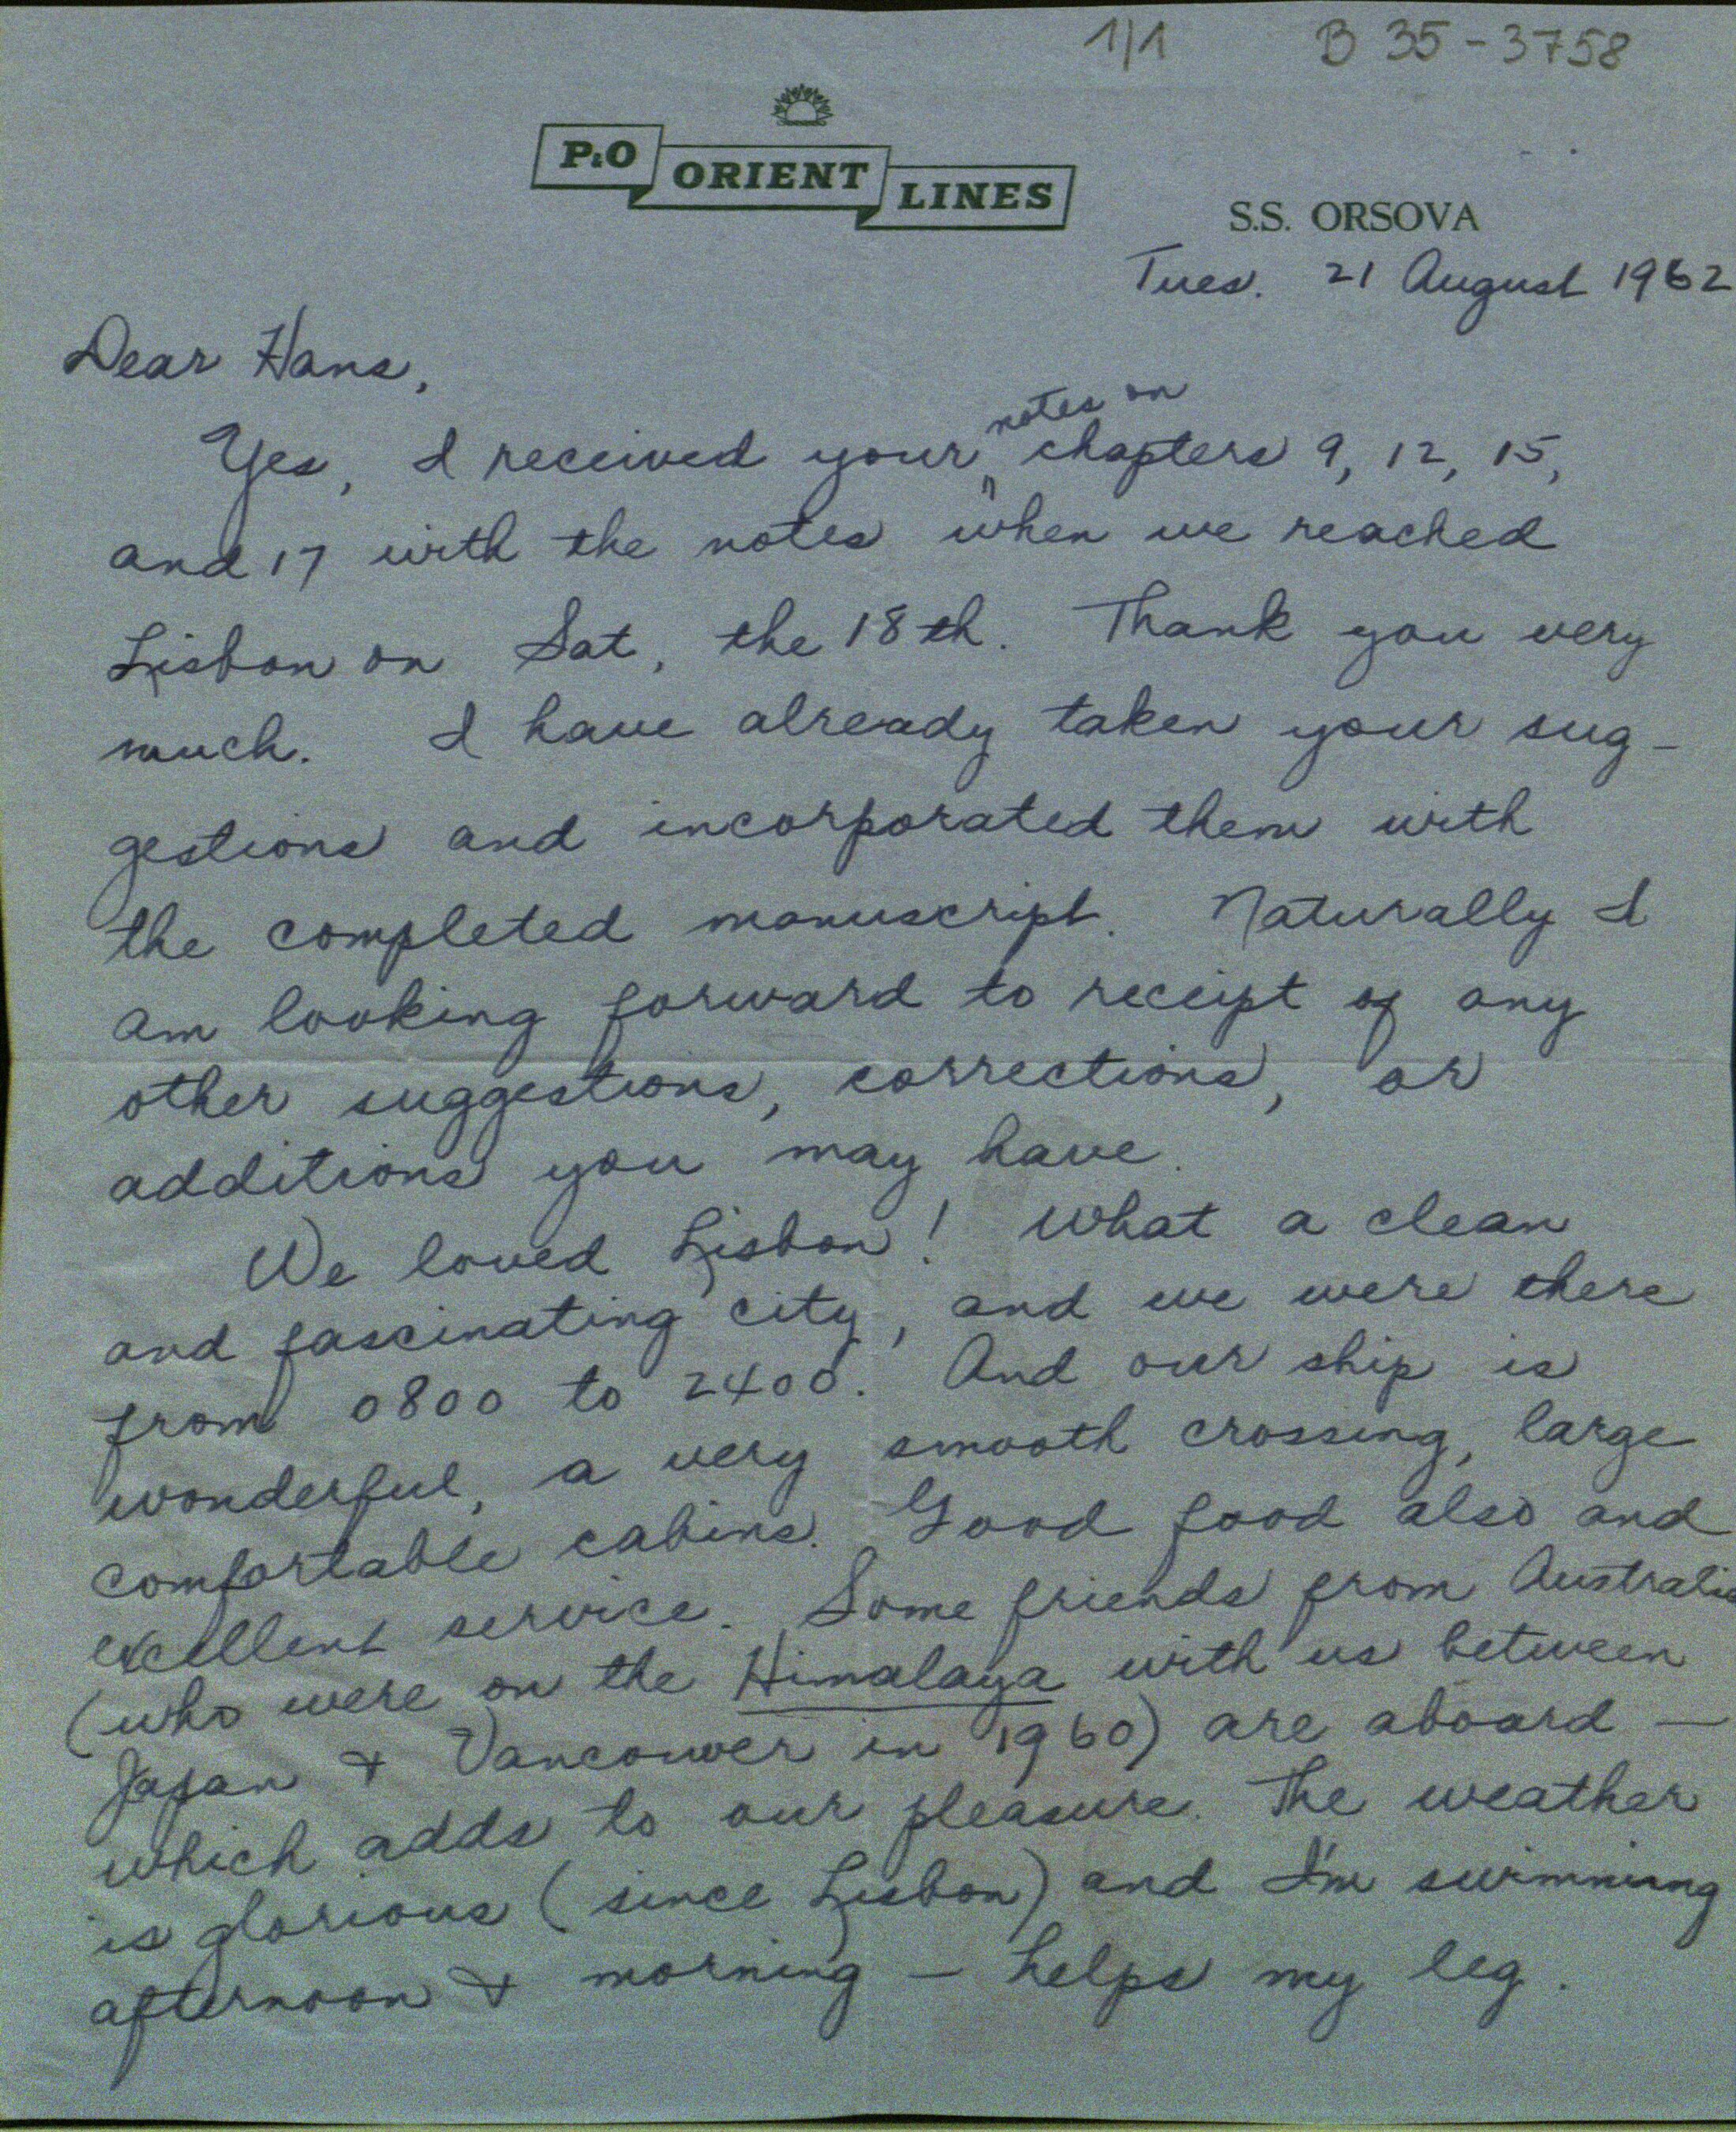 1/1 B 35-3758
P&O ORIENT LINES
S.S. ORSOVA
Tues. 21 August 1962
Dear Hans,
notes on
Yes, I received your chapters 9, 12, 15,
and 17 with the notes when we reached
Lisbon on Sat, the 18th. Thank you very
much. I have already taken your sug-
gestions and incorporated them with
the completed manuscript. Naturally I
am looking forward to receipt of any
other suggestions, corrections, or
additions you may have.
We loved Lisbon! What a clean
and fascinating city, and we were there
from 0800 to 2400. And our ship is
wonderful, a very smooth crossing, large
comfortable cabins. Good food also and
excellent service. Some friends from Australia
(who were on the Himalaya with us between
Japan & Vancouver in 1960) are aboard —
which adds to our pleasure. The weather
is glorious (since Lisbon) and I'm swimming
afternoon & morning — helps my leg.